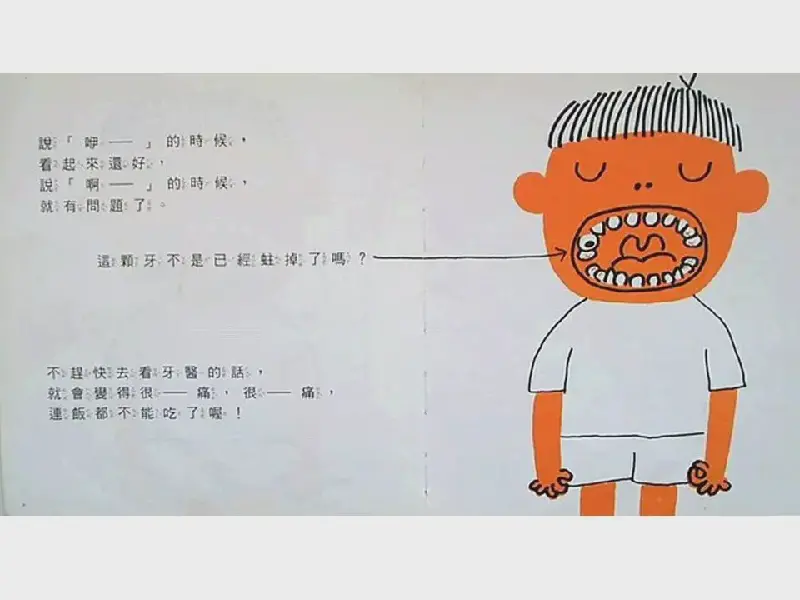 說「 咿—— 」的時候，
看起來還好，
說「 啊—— 」的時候，
就有問題了。
這顆牙不是已經蛀掉了嗎？
不趕快去看牙醫的話，
就會變得很——痛，很——痛，
連飯都不能吃了喔！